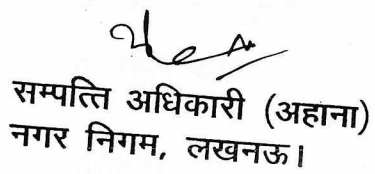 सम्पत्ति अधिकारी (अहाना)
नगर निगम, लखनऊ।